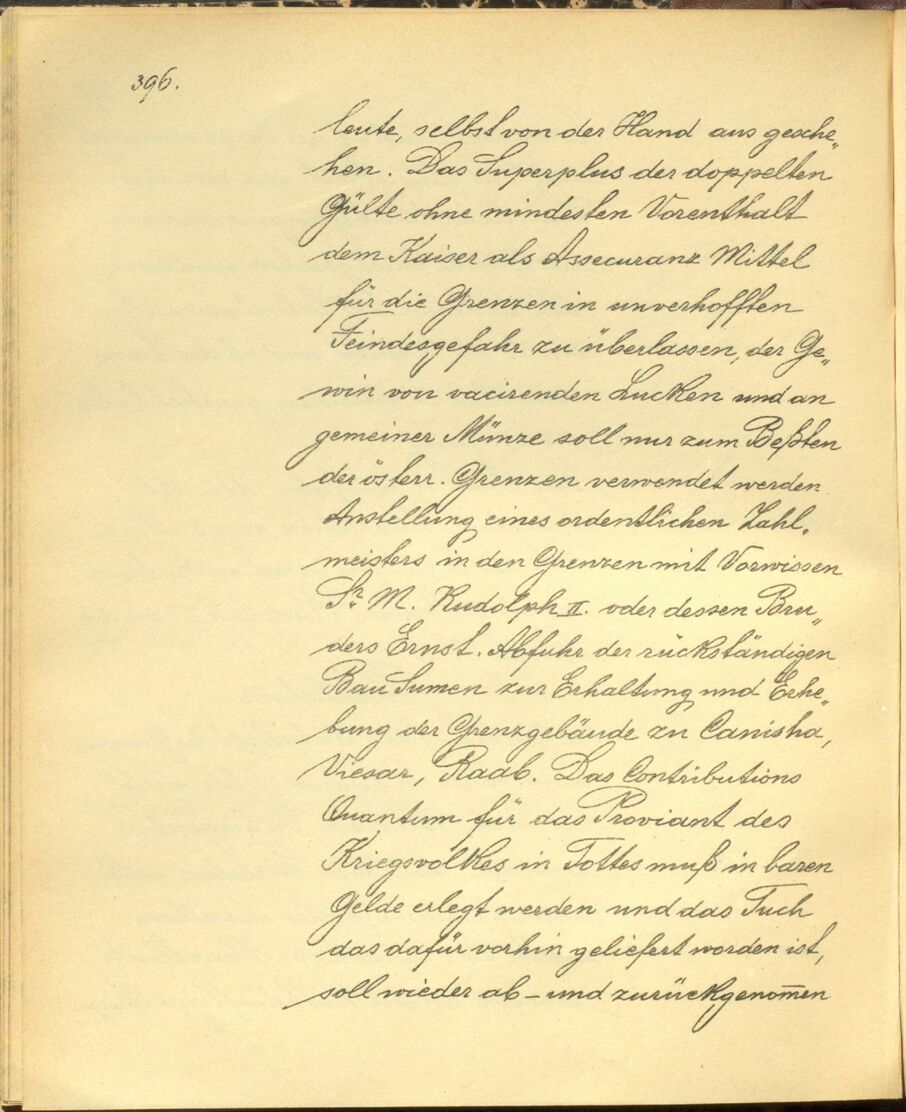 396.
leute, selbst von der Hand aus gesche„
hen. Das Superplus der doppelten
Gülte ohne mindesten Vorenthalt
dem Kaiser als Assecuranz Mittel
für die Grenzen in unverhofften
Feindesgefahr zu überlassen, der Ge„
win von vacirenden Lucken und an
gemeiner Münze soll nur zum Beßten
der österr. Grenzen verwendet werden
Anstellung eines ordentlichen Zahl„
meisters in den Grenzen mit Vorwissen
Sr. M. Rudolph II. oder dessen Bru„
ders Ernst. Abfuhr der rückständigen
Bau Sumen zur Erhaltung und Erhe„
bung der Grenzgebäude zu Canisha,
Viesar, Raab. Das Contributions
Quantum für das Proviant des
Kriegsvolkes in Tottes muß in baren
Gelde erlegt werden und das Tuch
das dafür vorhin geliefert worden ist,
soll wieder ab – und zurückgenom̅en